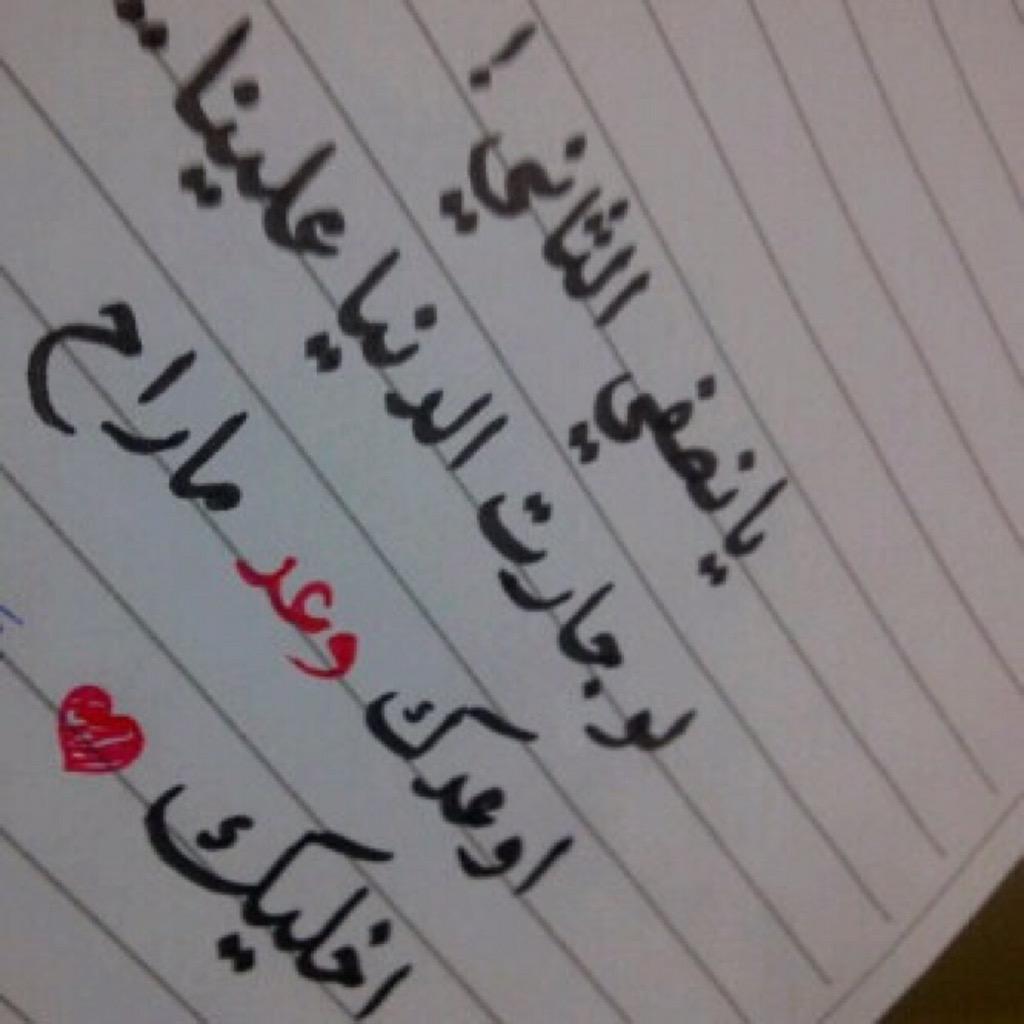 يانصفي الثاني !
لو جارت الدنيا علينا ..
اوعدك وعد ماراح
اخليك